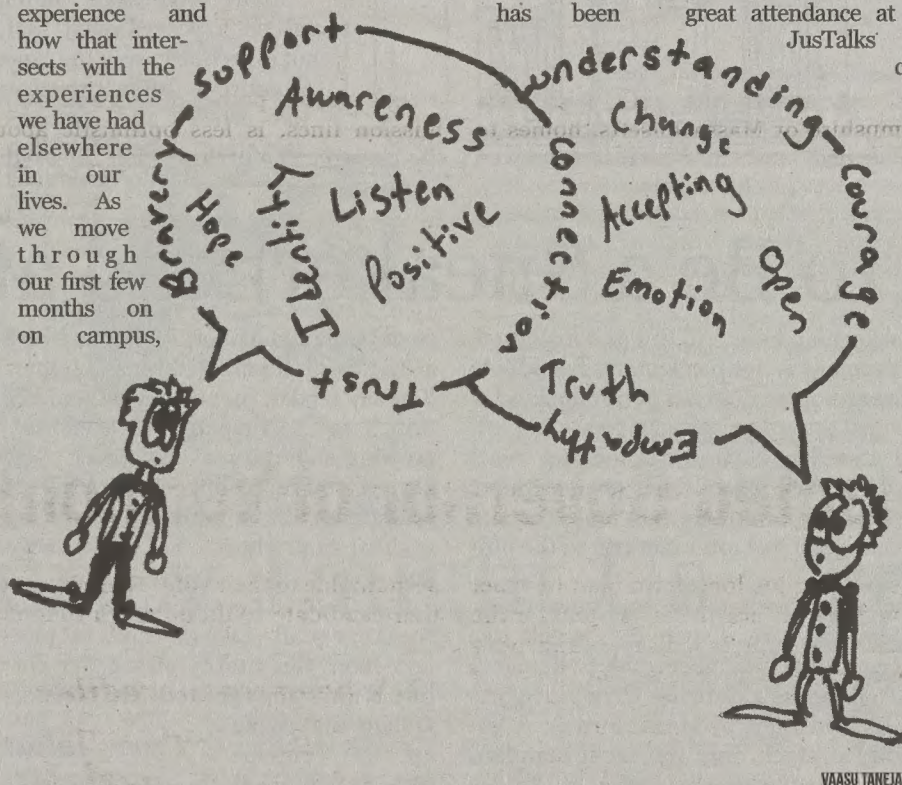 experience and
how that inter-
sects with the
experiences
we have had
elsewhere
in our
lives. As
we move
through
our first few
months on
on campus,
has been great attendance at
JusTalks
support
Awareness
Bravery
Hope
Identity
Listen
Positive
Trust
understanding
Change
Connection
Accepting
Courage
Open
Emotion
Truth
Empathy
VAASU TANEJA